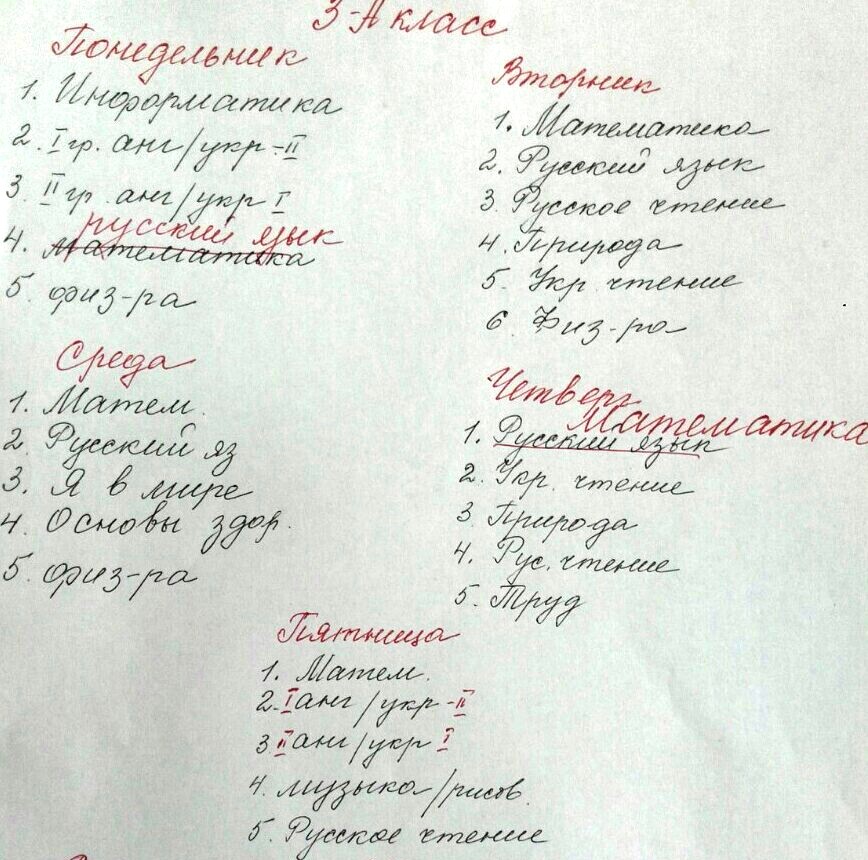 3-А класс
Понедельник
1. Информатика
2. I гр. анг/укр-II
3. II гр. анг/укр I
русский язык
4. Математика
5. физ-ра
Вторник
1. Математика
2. Русский язык
3. Русское чтение
4. Природа
5. Укр. чтение
6. Физ-ра
Среда
1. Матем.
2. Русский яз
3. Я в мире
4. Основы здор.
5. физ-ра
Четверг
Математика
1. Русский язык
2. Укр. чтение
3. Природа
4. Рус. чтение
5. Труд
Пятница
1. Матем.
2. I анг/укр-II
3 II анг/укр I
4. музыка/рисов.
5. Русское чтение